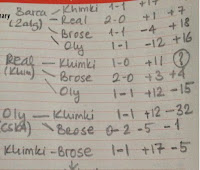 Barca — Khimki 1-1 +17
(Zalg) — Real 2-0 +1 +7
Brose 1-1 -4 +18
Oly 1-1 -12 +16
Real — Khimki 1-0 +11 ?
(Khim) Brose 2-0 +3 +4
Oly 1-1 +12 -15
Oly — Khimki 1-1 +12 -32
(CSKA) Brose 0-2 -5 -1
Khimki - Brose 1-1 +17 -5